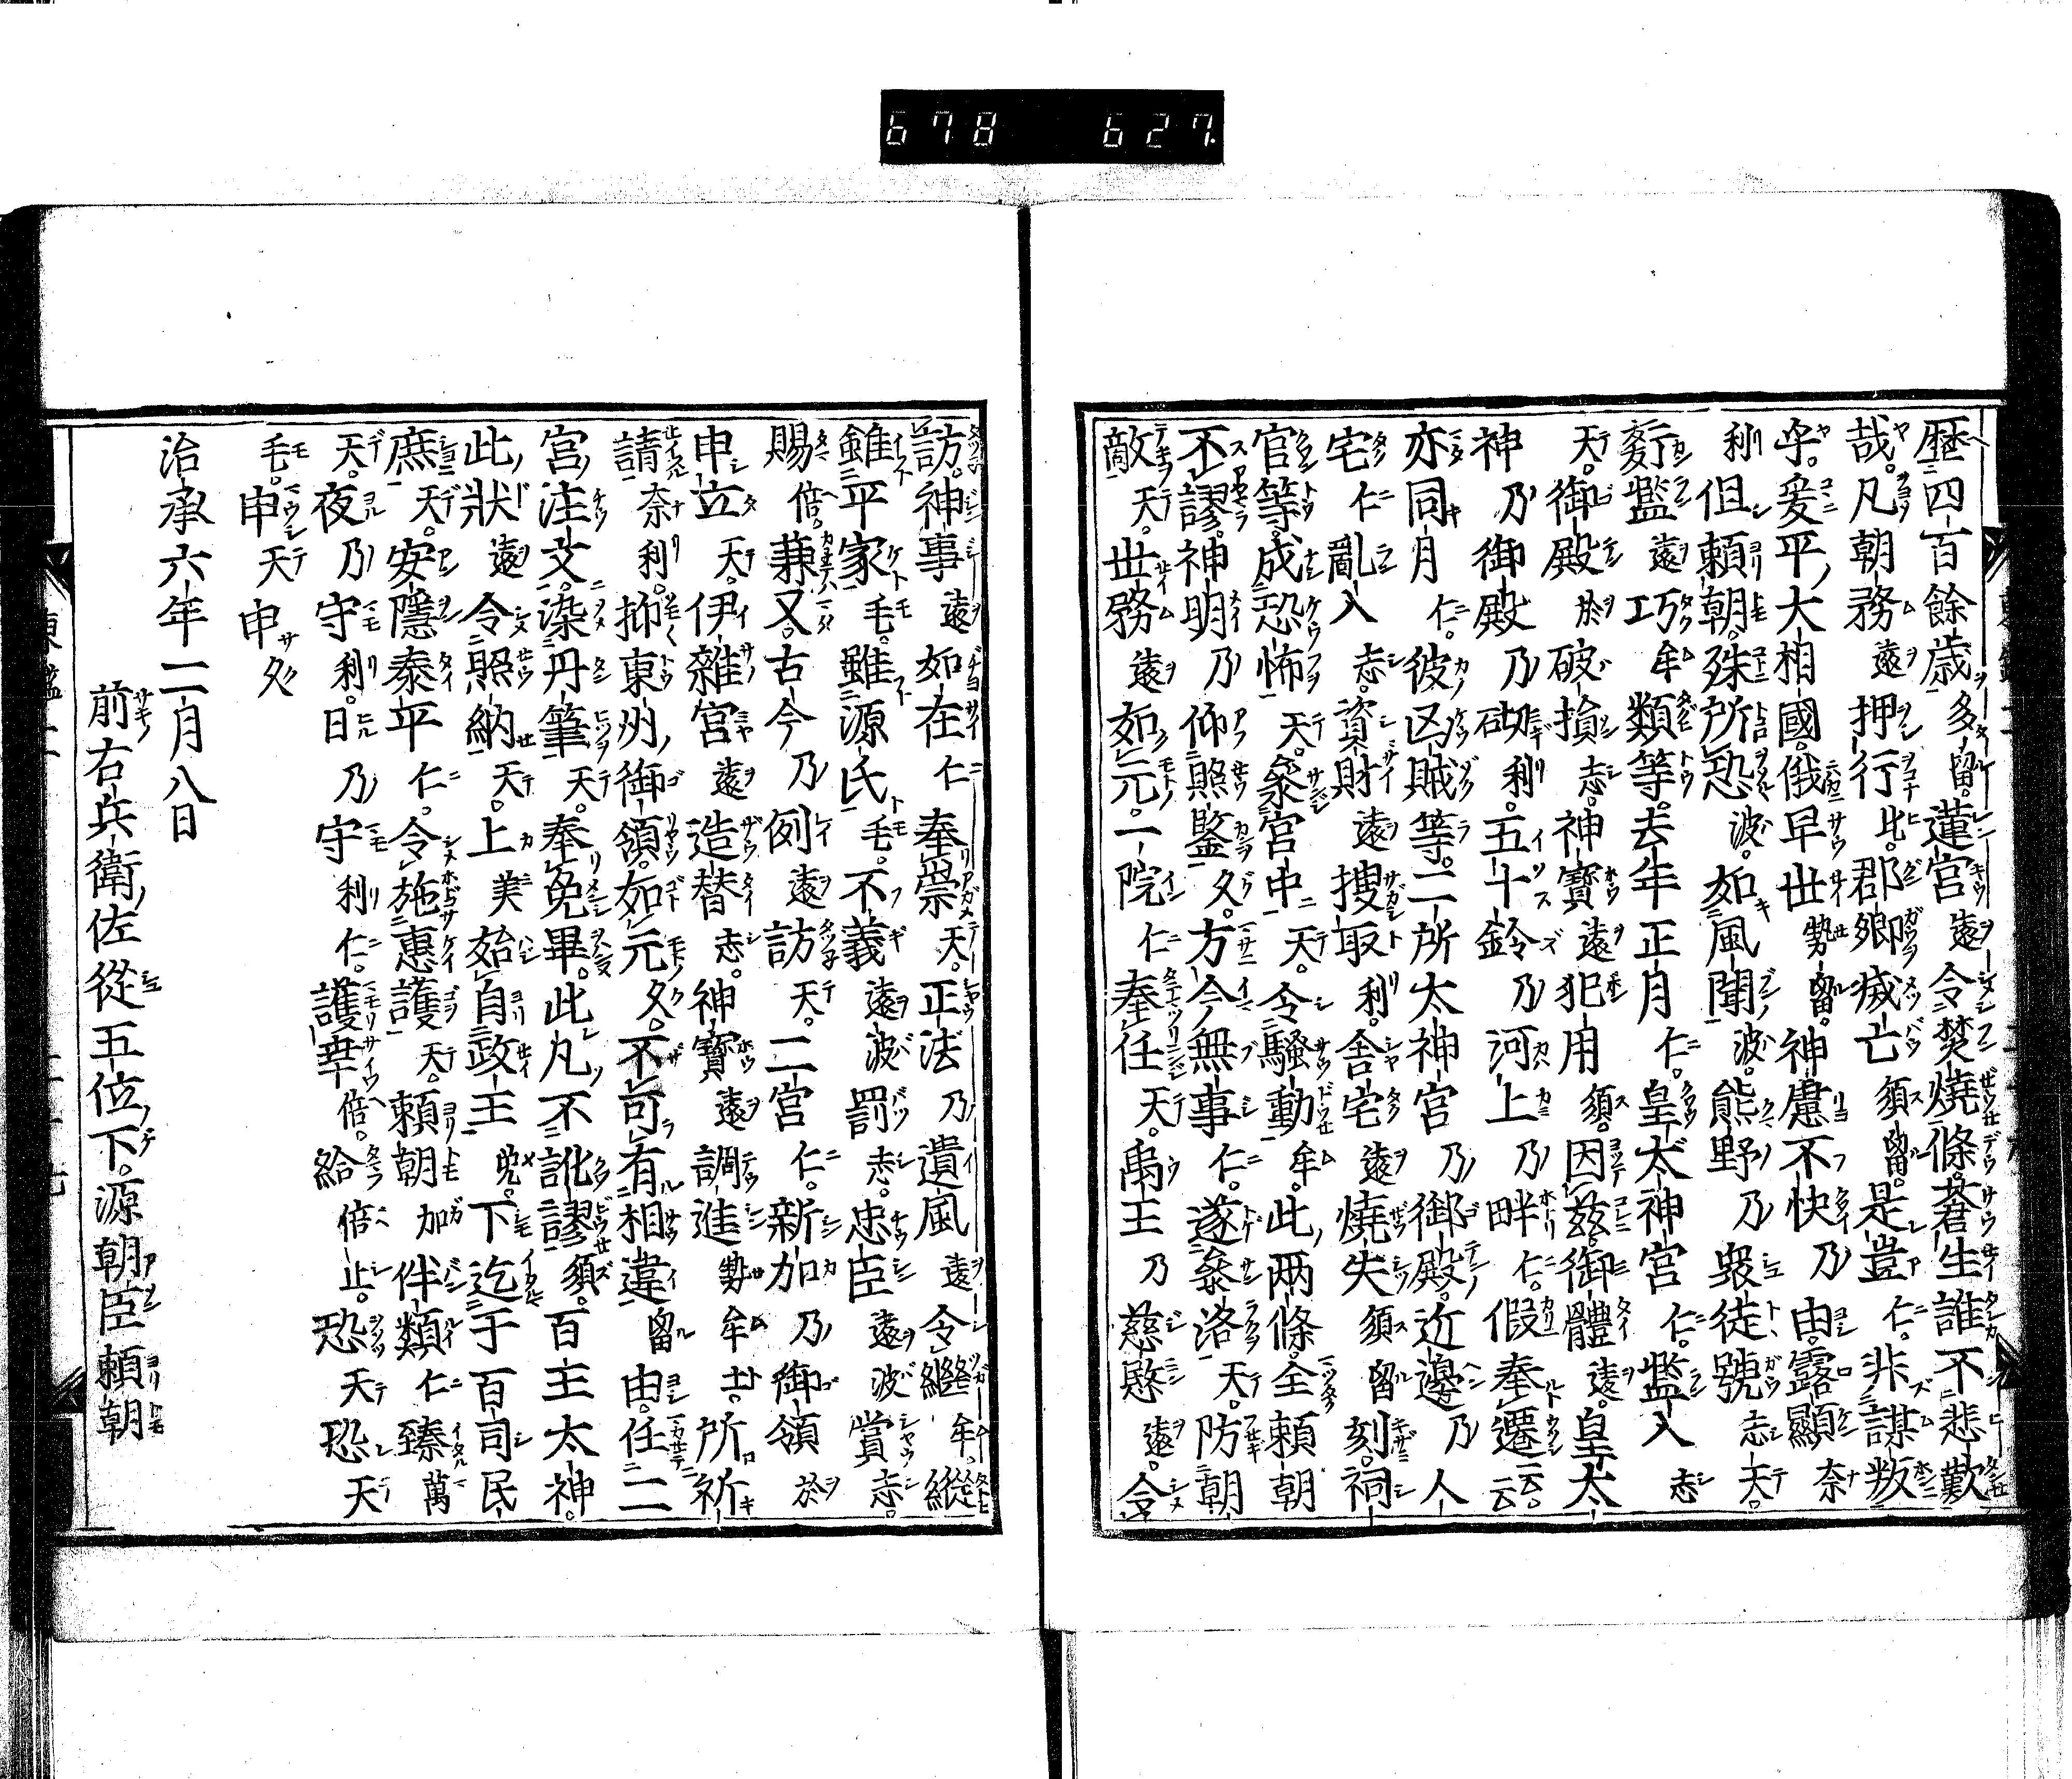 678 627
歷四百餘歲多留。蓮宮遠令焚燒條。蒼生誰不悲歎
哉。凡朝務遠押行比。郡鄉滅亡須留。是豈仁。非謀叛
乎。爰平大相國。俄早世勢留。神慮不快乃由。露顯奈
利但賴朝。殊所恐波。如風聞波。熊野乃衆徒號志天。
濫遠巧牟類等。去年正月仁。皇太神宮仁。濫入志
天。御殿於破損志。神寶遠犯用須。因茲。御體遠。皇太
神乃御殿乃砌利。五十鈴乃河上乃畔仁。假奉遷云云。
亦同月仁。彼凶賊等。二所太神宮乃御殿。近邊乃人
宅仁亂入志。資財遠搜取利。舍宅遠燒失須留刻。祠
官等。成恐怖天。參宮中天。令騷動牟。此兩條。全賴朝
不謬。神明乃仰照鑒久。方今無事仁。遂參洛天。防朝
敵天。世務遠如元。一院仁奉任天。禹王乃慈愍遠。令
訪。神事遠如在仁奉崇天。正法乃遺風遠令繼牟。縱
雖平家毛。雖源氏毛。不義遠波罰志。忠臣遠波賞志。
賜倍。兼又。古今乃例遠訪天。二宮仁。新加乃御領於
申立天。伊雜宮遠造替志。神寶遠調進勢牟止。所祈
請奈利。抑東州御領。如元久。不可有相違留由。任二
宮注文。染丹筆天。奉免畢。此凡不訛謬須。百主太神。
此狀遠令照納天。上美始自政王兒。下迄于百司民
庶天。安隱泰平仁。令施惠護天。賴朝加伴類仁臻萬
天。夜乃守利。日乃守利仁。護幸倍。給倍止。恐天恐天
毛。申天申久
治承六年二月八日
前右兵衛佐從五位下。源朝臣賴朝